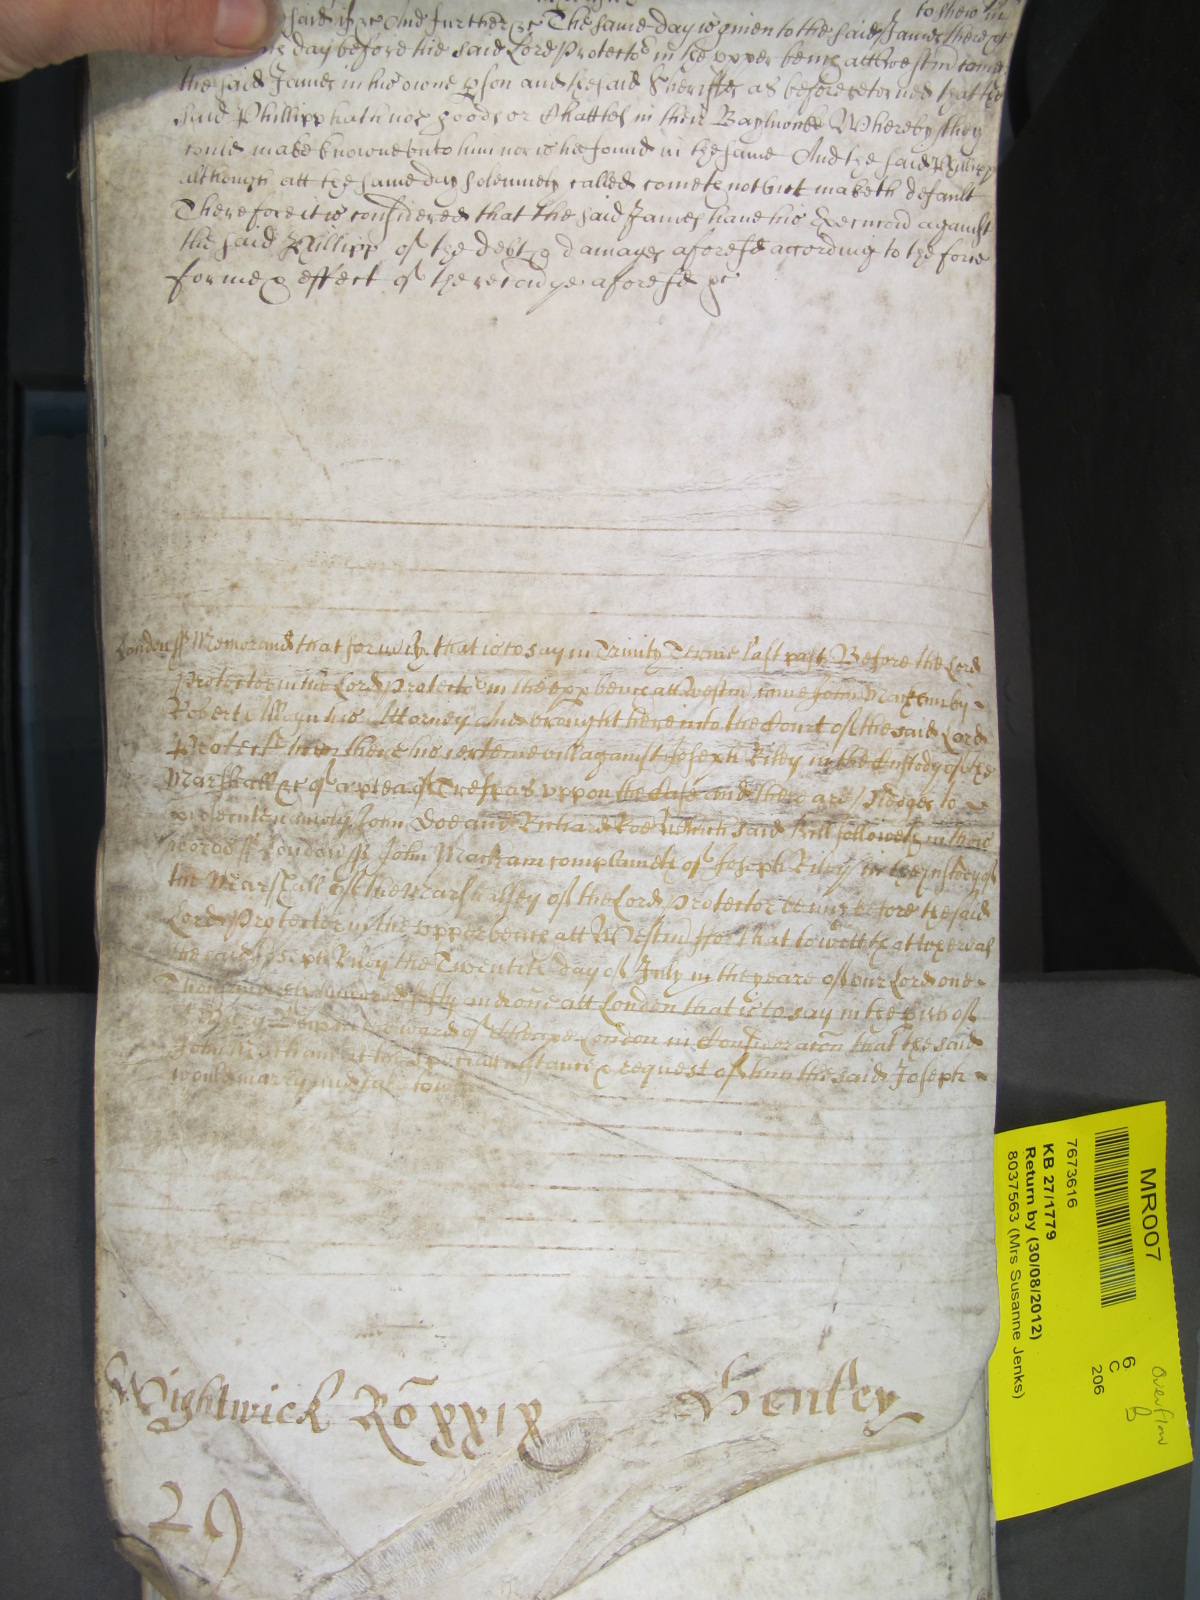 to show in
said if &c And further &c The same day is given to the said James there &c
day before the said Lord Protector in the upper bench att Westm come
the said James in his owne pson and the said Sheriffes as before retorned that the
said Phillipp hath noe goods or Chattels in their Baylywicke Whereby they
could make knowne unto him nor is he found in the same And the said Phillipp
although att the same day solemnely called cometh not but maketh default
Therefore it is considered that the said James have his Execucion against
the said Phillipp of the debt & damages aforesd according to the force
forme & effect of the recoverye aforesd &c
London ss Memorand that formerly that is to say in Trinity Terme last past Before the Lord
Protector in the Lord Protectors in the upp bench att Westm came John Markham by
Robert his Attorney and brought here into the Court of the said Lord
Protector then there his certeine bill against Joseph Riley in the Custody of the
Marshall &c of a plea of Trespas uppon the Case and there are pledges to
prosecute namely John Doe and Richard Roe Which said Bill followeth in these
words ss London ss John Markham complaineth of Joseph Riley in the Custody of
the Marshall of the Marshalsey of the Lord Protector being before the said
Lord Protector in the upper bench att Westm For that to witt that whereas
the said Joseph Riley the Twentith day of July in the yeare of our Lord one
Thousand six hundred fifty and one att London that is to say in the pish of
Mary Bow in the ward of Cheape London in Consideracon that the said
John Markham at the speciall instance & request of him the said Joseph
would marry and take to wife
Wightwick Ro xxix Henley
29
MR007
7673616
KB 27/1779
Return by (30/08/2012)
8037563 (Mrs Susanne Jenks)
6
C
206
Overflow
B